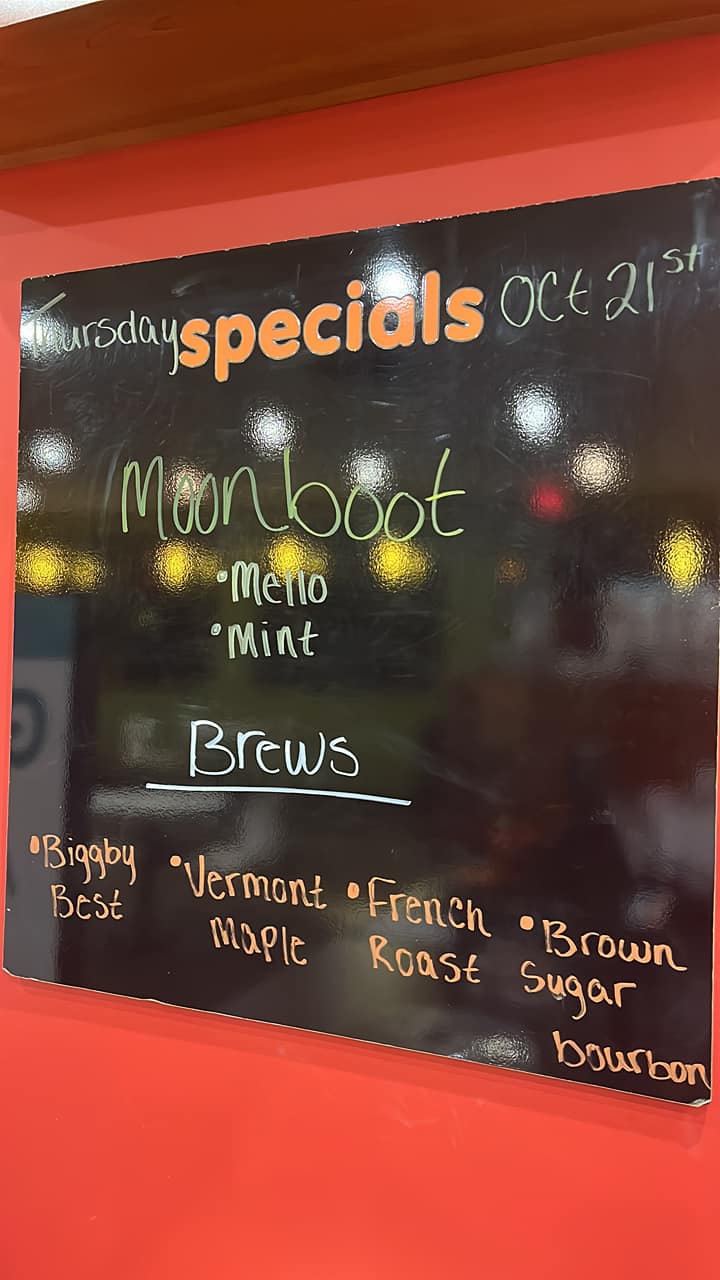 Thursday specials Oct 21st
Moonboot
•Mello
•Mint
Brews
•Biggby •Vermont •French •Brown
Best Maple Roast Sugar
bourbon